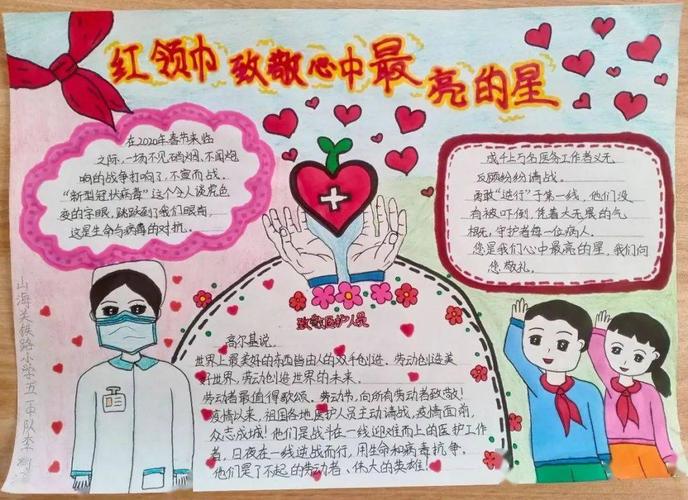 红领巾 致敬心中最亮的星
在2020年春节来临
之际,一场不见硝烟,不闻炮
响的战争打响了,不宣而战。
"新型冠状病毒"这个令人谈虎色
变的字眼,跳跃到了我们眼前,
这是生命与病毒的对抗。
成千上万名医务工作者义无
反顾纷纷请战。
勇敢"逆行"于第一线,他们没
有被吓倒,凭着大无畏的气
概,守护者每一位病人。
您是我们心中最亮的星,我们向
您敬礼。
致敬医护人员
高尔基说。
世界上最美好的东西皆由人的双手创造。劳动创造美
好世界,劳动创造世界的未来。
劳动者最值得歌颂。劳动节,向所有劳动者致敬!
疫情以来,祖国各地医护人员主动请战,疫情面前,
众志成城!他们是战斗在一线迎难而上的医护工作
者,日夜在一线逆战而行,用生命和病毒抗争。
他们是了不起的劳动者、伟大的英雄!
山海关铁路小学五一中队李